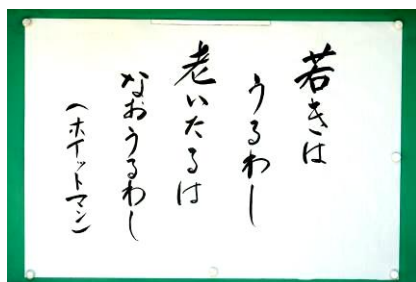 若きは
うるわし
老いたるは
なおうるわし
（ホイットマン）